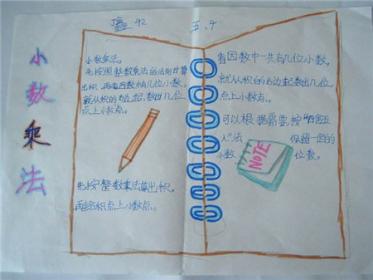 小数乘法
42
五.4
小数乘法。
先按照整数乘法的法则计算
出积,再看因数几位小数,
就从积的右边起数出几位
点上小数点。
先按整数乘法算出积,
再给积点上小数点。
看因数中一共有几位小数,
就从积的右边起数出几位
点上小数点。
可以根据需要,按“四舍五
入”法 保留一定的
小数 位数。
NOTE